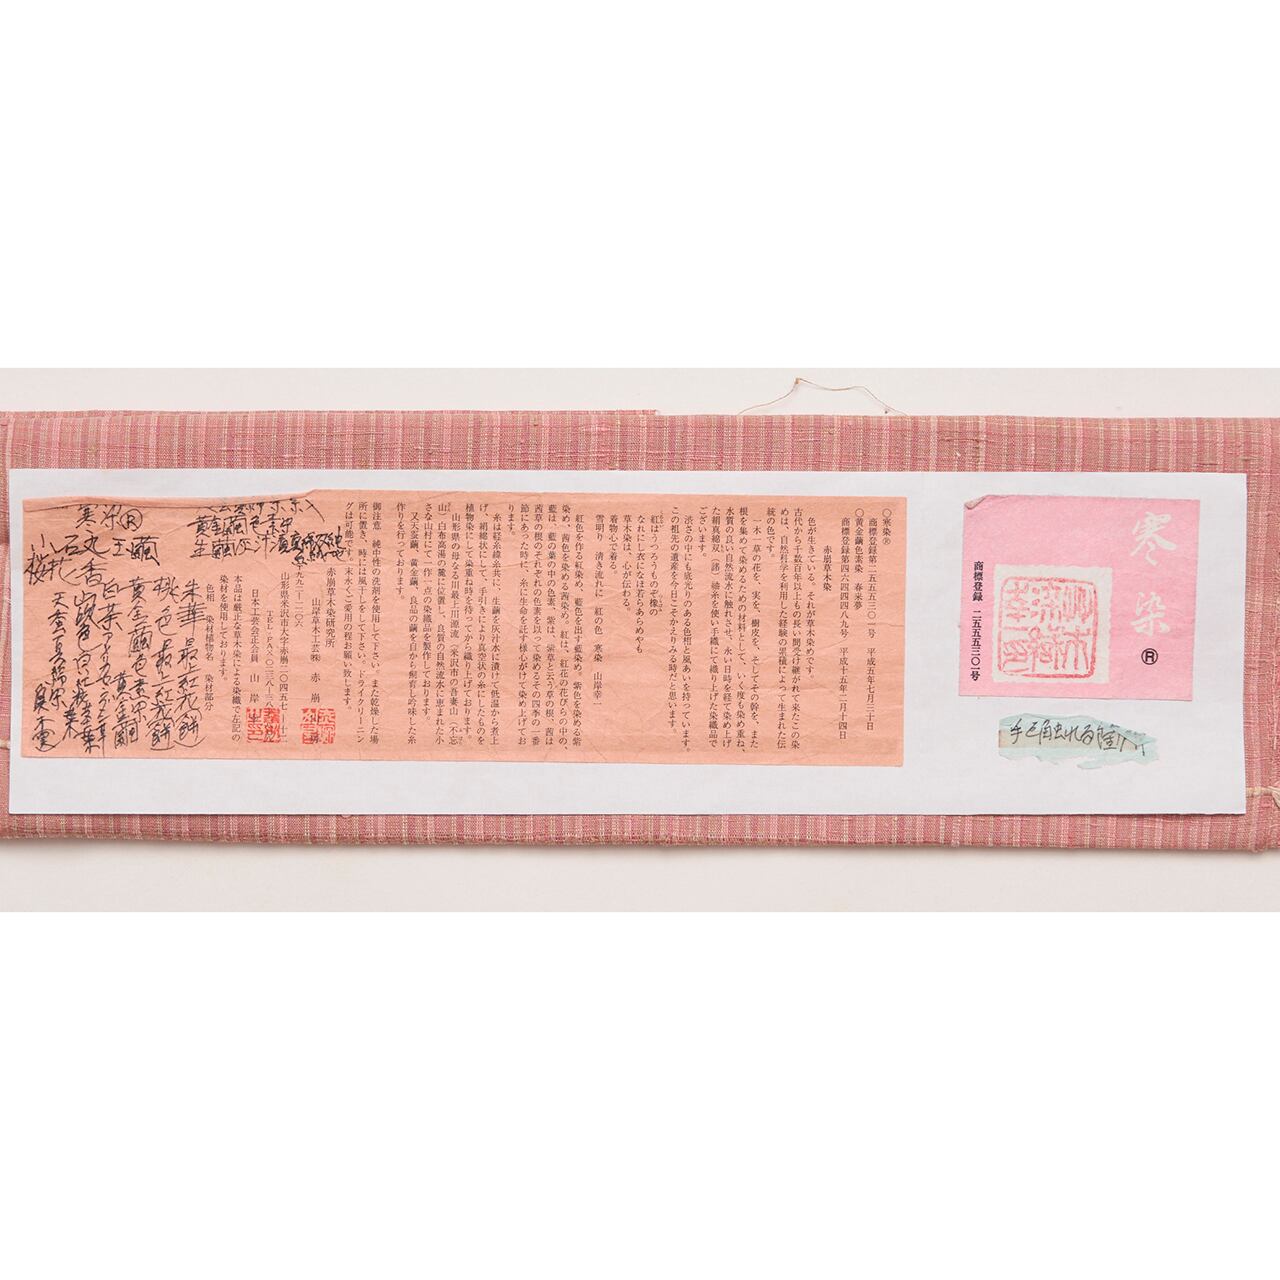 寒染
Ⓡ
商標登録 二五五五三〇一号
手に触れる
〇寒染Ⓡ
商標登録第二五五五三〇一号 平成五年七月三十日
〇黄金繭色素染 春来夢
商標登録第四六四四四八九号 平成十五年二月十四日
赤崩草木染
色が生きている。それが草木染めです。
古代から千数百年以上もの長い間受け継がれて来たこの染
めは、自然科学を利用した経験の累積によって生まれた伝
統の色です。
一木一草の花を、実を、樹皮を、そしてその幹を、また
根を集めて染めるための材料として、いく度も染め重ね、
水質の良い自然流水に触れさせ、永い日時を経て染め上げ
た絹真綿双(諸)紬糸を使い手織にて織り上げた染織品で
ございます。
渋さの中にも底光りのある色相と風あいを持っています。
この祖先の遺産を今日こそかえりみる時だと思います。
紅はうつろうものぞ橡の
なれにし衣になほ若らあらめやも
草木染は、心が伝わる。
着物心で着る。
雪明り 清き流れに 紅の色 寒染 山岸幸一
紅色を作る紅染め、藍色を出す藍染め。紫色を染める紫
染め、茜色を染める茜染め。紅は、紅花の花びらの中の、
藍は、藍の葉の中の色素、紫は、紫草と云う草の根、茜は
茜草の根のそれぞれの色素を以って染めるその四季の一番
節にあった時に、糸に生命を託す様心がけて染め上げてお
ります。
糸は経糸緯糸共に、生繭を灰汁水に漬けて低温から煮上
げ、絹綿状にして、手引きにより真空状の糸にしたものを
植物染にして染重ね時を持ってから織り上げております。
山形県の母なる川最上川源流(米沢市の吾妻山(不忘
山)白布高湯の麓に位置し、良質の自然流水に恵まれた小
さな山村にて一作一点の染織品を製作しております。
又天蚕繭、黄金繭、良品の繭を自から飼育し吟味した糸
作りを行っております。
御注意 純中性の洗剤を使用して下さい。また乾燥した場
所に置き、時には風干しをして下さい。ドライクリーニン
グは可能です。末永くご愛用の程お願い致します。
赤崩草木染研究所
山岸草木工芸(株) 赤崩
九九二―一二〇六
山形県米沢市大字赤崩二〇四五七―十二
日本工芸会正会員 山岸幸一
本品は厳正な草木染による染織で左記の
染材を使用しております。
色相 染材植物名 染材部分
朱華 最上紅花(餅)
桃色 最上紅花(餅)
黄金繭色素中
寒染Ⓡ
小石丸 玉繭